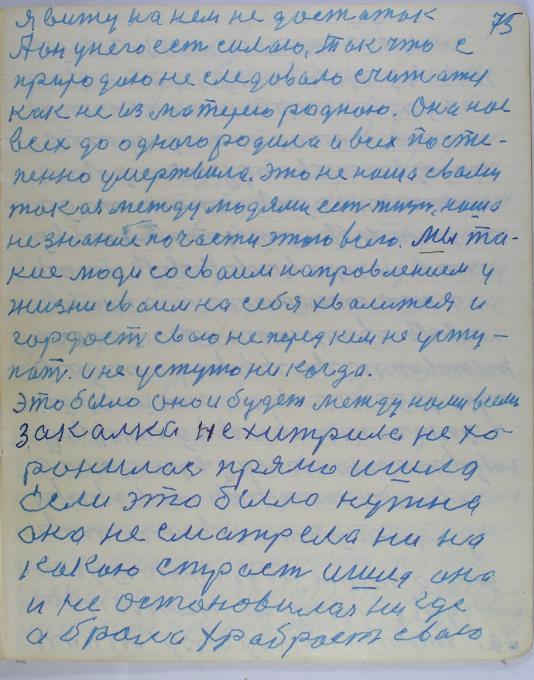 я вижу на нем не достаток 75
А он у него ест силою, так что с
природою не следовало считату
как не из матерею родною. Она нас
всех до одного родила и всех посте-
пенно умертвила. это не наша с вами
такая между людями ест жизн, наша
не знание по части этого всего. Мы та-
кие люди со своим направлением у
жизни своим на себя хвалимся и
гордост свою не перед кем не усту-
пат. и не уступю никогда.
это было оно и будет между нами всеми
закалка не хитрила не хо-
ронилас прямо ишила
если это было нужна
она не сматрела ни на
какою страст ишла она
и не остоновилас нигде
а брала храброст сваю